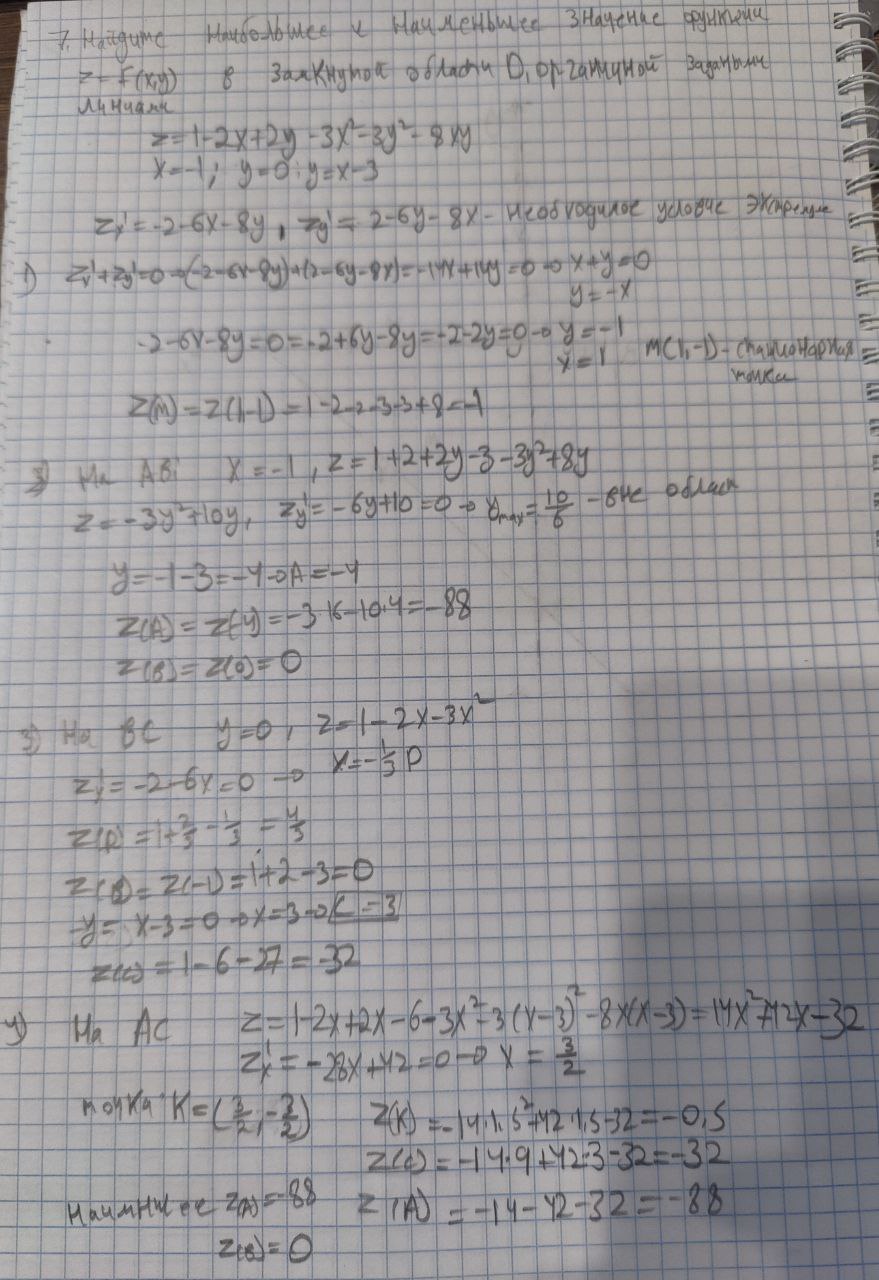 7. Найдите Наибольшее и Наименьшее Значение функции
z=F(x,y) в Замкнутой области D, органичуной Задаными
линиями
z=1-2x+2y-3x²-3y²-8xy
x=-1; y=0; y=x-3
Zx'=-2-6x-8y, Zy'=2-6y-8x - необходимое условие экстремума
1) Zx'+Zy'=0→(-2-6x-8y)+(2-6y-8x)=-14x+14y=0→x+y=0
y=-x
-2-6x-8y=0=-2+6y-8y=-2-2y=0→y=-1
x=1 M(1,-1)-стационарная
точка
Z(M)=Z(1-1)=1-2-2-3-3+8=-1
На AB: x=-1, z=1+2+2y-3-3y²+8y
z=-3y²+10y, Zy'=-6y+10=0→y max=10/6 - вне област
y=-1-3=-4→A=-4
Z(A)=Z(-4)=-3·16-10·4=-88
Z(B)=Z(0)=0
3) На BC y=0, z=1-2x-3x²
Zx'=-2-6x=0→ x=-1/3 P
Z(P)=1+2/3-1/3=4/3
Z(B)=Z(-1)=1+2-3=0
-y=x-3=0→x=3→C=3
Z(C)=1-6-27=-32
4) На AC z=1-2x+2x-6-3x²-3(x-3)²-8x(x-3)=14x²+42x-32
Zx'=-28x+42=0→x=3/2
точка K=(3/2;-3/2) Z(K)=-14·1.5²+42·1,5-32=-0,5
Z(C)=-14·9+42·3-32=-32
Наимншее Z(A)=-88 Z(A)=-14-42-32=-88
Z(B)=0